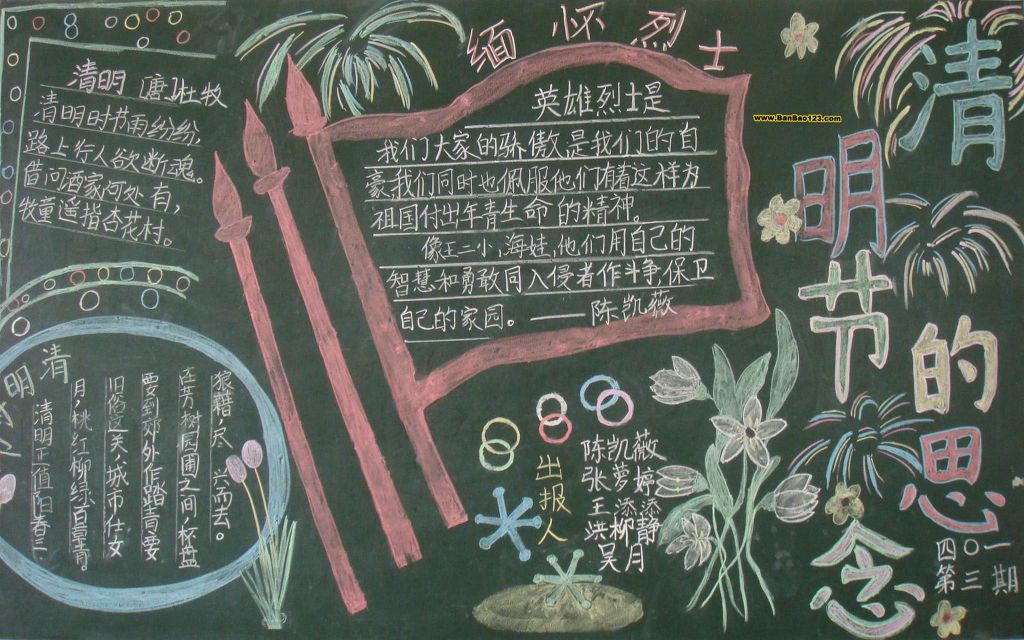 清明节的思念
缅怀烈士
www.BanBao123.com
清明 [唐]杜牧
清明时节雨纷纷，
路上行人欲断魂。
借问酒家何处有，
牧童遥指杏花村。
英雄烈士是
我们大家的骄傲，是我们的自
豪，我们同时也佩服他们有着这样为
祖国付出年青生命的精神。
像王二小，海娃，他们用自己的
智慧和勇敢同入侵者作斗争，保卫
自己的家园。——陈凯薇
清明
清明正值阳春三
月，桃红柳绿百草青。
旧俗这天，城市仕女
要到郊外作踏青耍
在芳树园圃之间，杯盘
狼藉，尽兴而去。
出报人
陈凯薇
张夢婷
王添添
洪柳静
吴月
四〇一
第三期